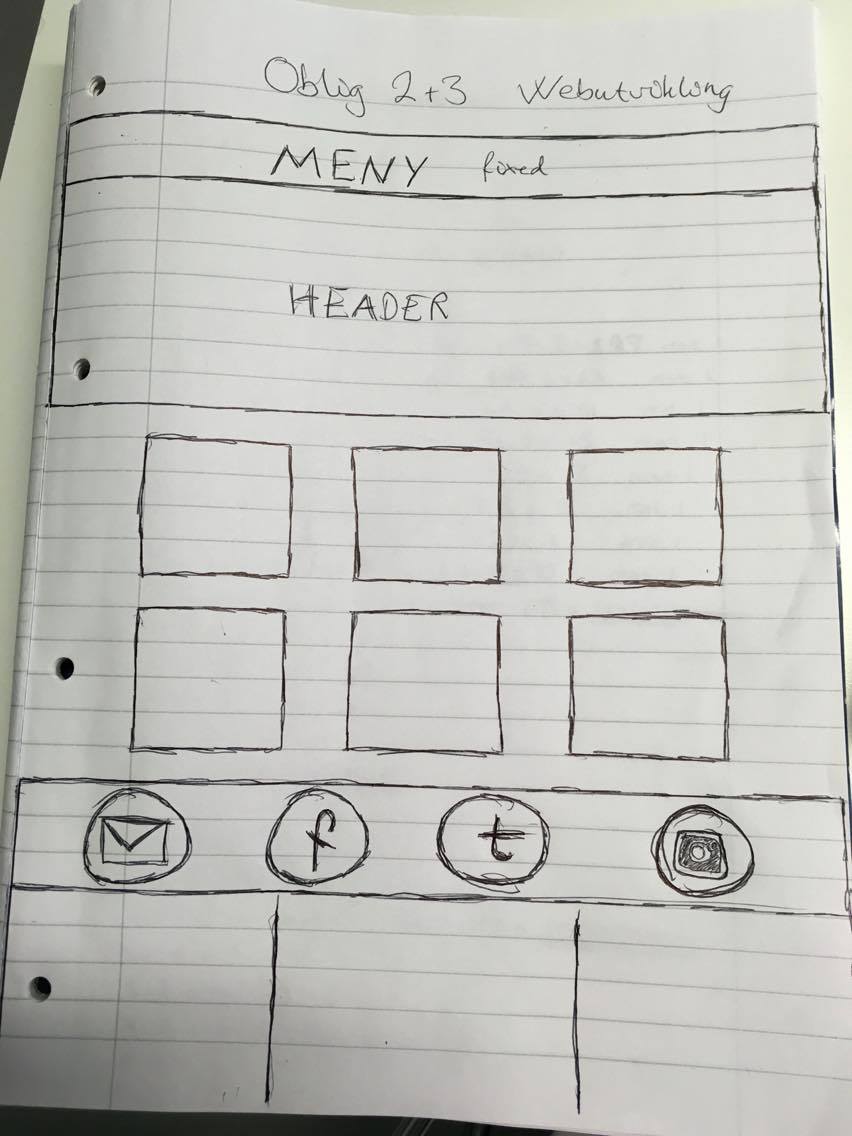 Oblig 2+3 Webutvikling
MENY fixed
HEADER
f t